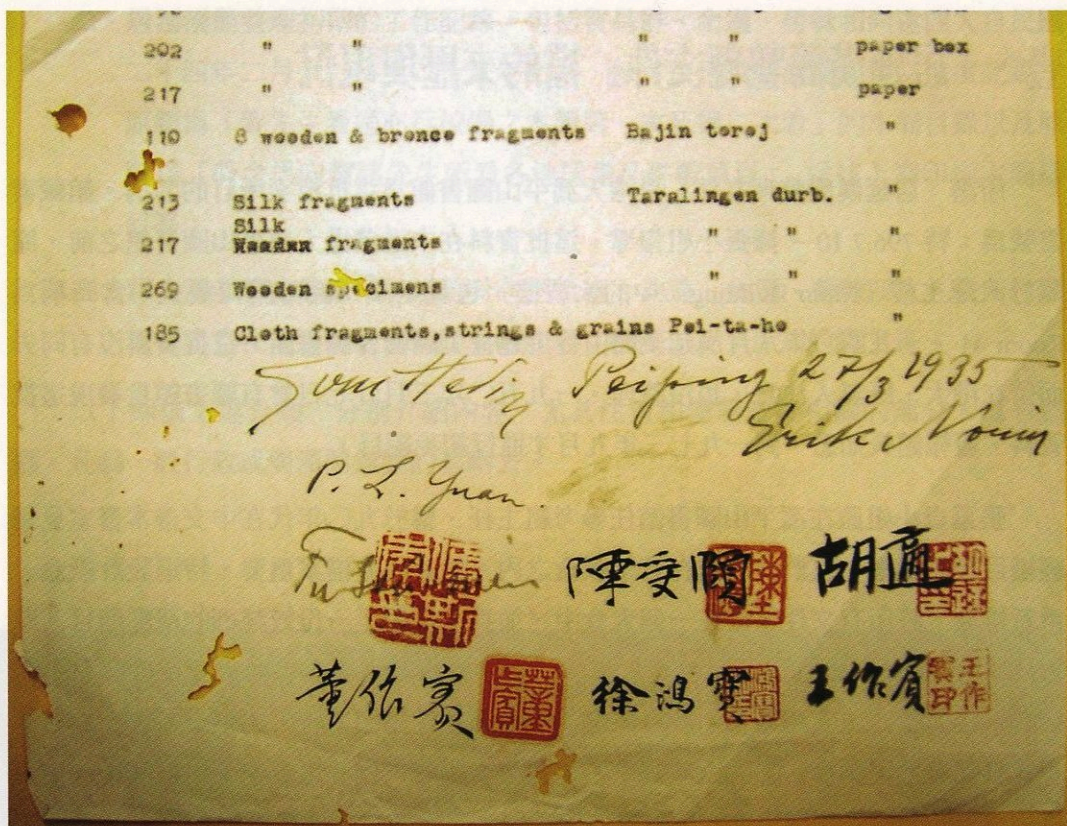 202 " " " " paper box
217 " " " " paper
110 8 wooden & bronce fragments Bajin torej "
213 Silk fragments Taralingen durb. "
Silk
217 Wooden fragments " " "
269 Wooden specimens " " "
185 Cloth fragments,strings & grains Pei-ta-ho "
Sven Hedin Peiping 27/3 1935
Erik Norin
P. L. Yuan.
陳受頤 胡適
董作賓 徐鴻寶 王作賓
王作賓印